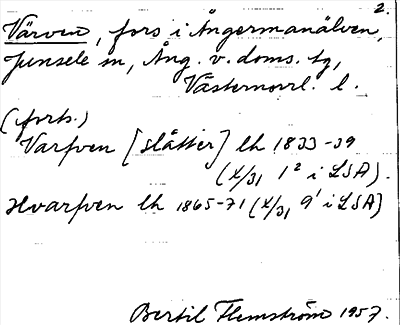 2.
Värven, fors i Ångermanälven,
Junsele sn, Ång. v. doms. tg,
Västernorrl. l.
(forts.)
Varfven [slåtter] lh 1833-39
(X/31 1² i LSA).
Hvarfven lh 1865-71 (X/31 9¹ i LSA)
Bertil Flemström 1957.